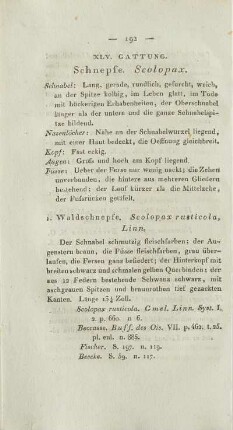 — 192 —
XLV. GATTUNG.
Schnepfe. Scolopax.
Schnabel: Lang, gerade, rundlich, gefurcht, weich,
an der Spitze kolbig, im Leben glatt, im Tode
mit höckerigen Erhabenheiten, der Oberschnabel
länger als der untere und die ganze Schnabelspi-
tze bildend.
Nasenlöcher: Nahe an der Schnabelwurzel liegend,
mit einer Haut bedeckt, die Oeffnung gleichbreit.
Kopf: Fast eckig.
Augen: Groß und hoch am Kopf liegend.
Füsse: Ueber der Ferse nur wenig nackt; die Zehen
unverbunden, die hintere aus mehreren Gliedern
bestehend; der Lauf kürzer als die Mittelzche,
der Fußwurzeln getäfelt.
1. Waldschnepfe. Scolopax rusticola,
Linn.
Der Schnabel schmutzig fleischfarben; der Au-
genstern braun, die Füsse fleischfarben, grau über-
laufen, die Fersen ganz befiedert; der Hinterkopf mit
breiten schwarz und schmalen gelben Querbinden; der
aus 12 Federn bestehende Schwanz schwarz, mit
aschgrauen Spitzen und braunrothen tief gezackten
Kanten. Länge 13½ Zoll.
Scolopax rusticola. Gmel. Linn. Syst. I.
2 p. 660. n 6.
Beccasse. Buff. des Ois. VII. p. 462. t. 25.
pl. enl. n. 885.
Fischer. S. 197. n. 119.
Beseke. S. 59. n. 117.